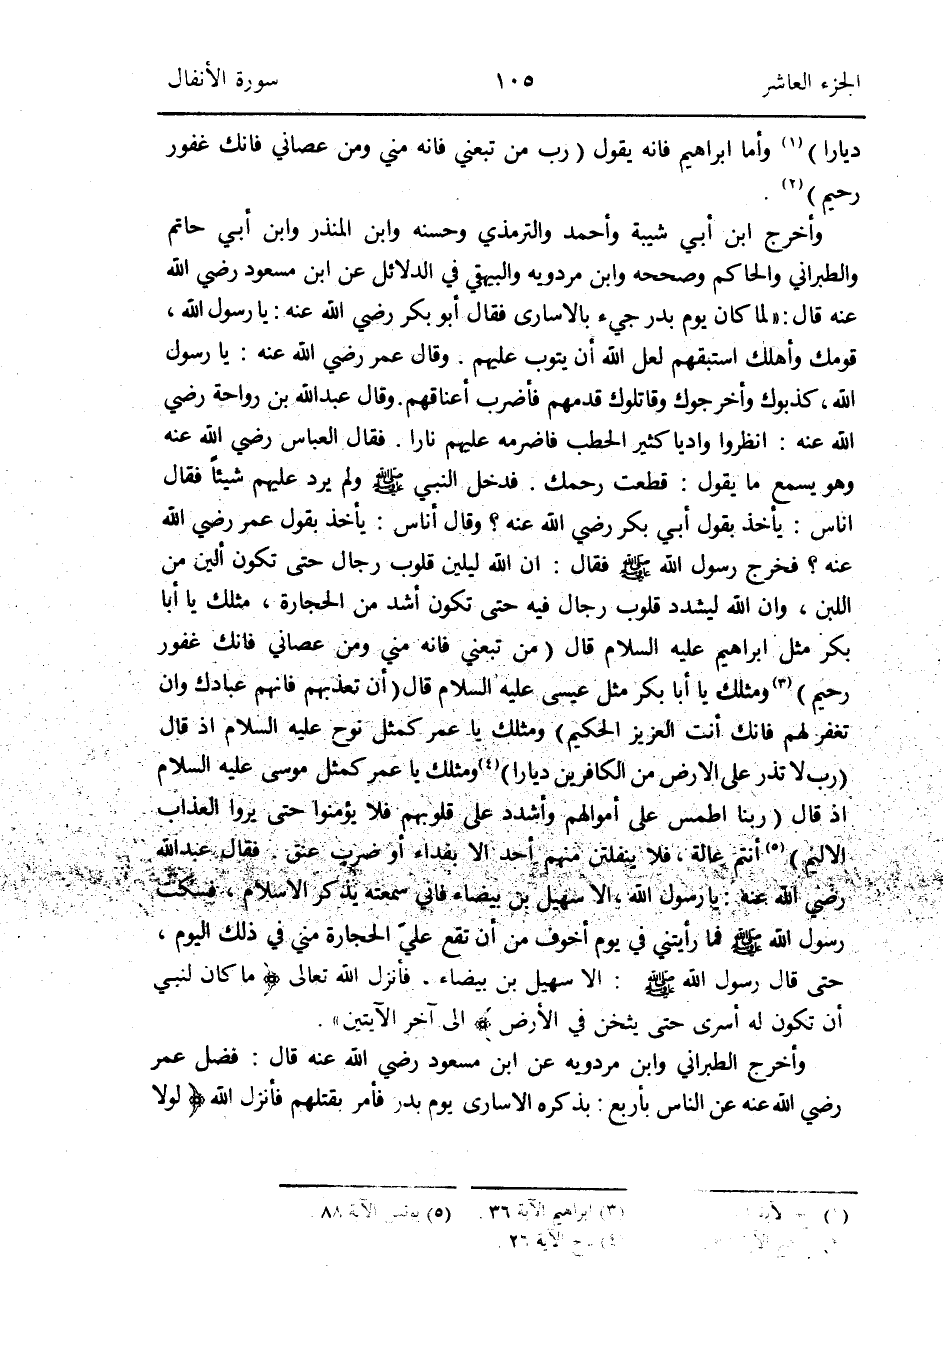 الجزء العاشر ١٠٥ سورة الأنفال
ديارا ) (١) وأما ابراهيم فانه يقول ( رب من تبعني فانه مني ومن عصاني فانك غفور
رحيم ) (٢) .
وأخرج ابن أبي شيبة وأحمد والترمذي وحسنه وابن المنذر وابن أبي حاتم
والطبراني والحاكم وصححه وابن مردويه والبيهقي في الدلائل عن ابن مسعود رضي الله
عنه قال : «لما كان يوم بدر جيء بالاسارى فقال أبو بكر رضي الله عنه : يا رسول الله ،
قومك وأهلك استبقهم لعل الله أن يتوب عليهم . وقال عمر رضي الله عنه : يا رسول
الله ، كذبوك وأخرجوك وقاتلوك قدمهم فأضرب أعناقهم . وقال عبدالله بن رواحة رضي
الله عنه : انظروا واديا كثير الحطب فاضرمه عليهم نارا . فقال العباس رضي الله عنه
وهو يسمع ما يقول : قطعت رحمك . فدخل النبي ﷺ ولم يرد عليهم شيئاً فقال
اناس : يأخذ بقول أبي بكر رضي الله عنه ؟ وقال أناس : يأخذ بقول عمر رضي الله
عنه ؟ فخرج رسول الله ﷺ فقال : ان الله ليلين قلوب رجال حتى تكون ألين من
اللبن ، وان الله ليشدد قلوب رجال فيه حتى تكون أشد من الحجارة ، مثلك يا أبا
بكر مثل ابراهيم عليه السلام قال ( من تبعني فانه مني ومن عصاني فانك غفور
رحيم ) (٣) ومثلك يا أبا بكر مثل عيسى عليه السلام قال ( أن تعذبهم فانهم عبادك وان
تغفر لهم فانك أنت العزيز الحكيم ) ومثلك يا عمر كمثل نوح عليه السلام اذ قال
(رب لا تذر على الارض من الكافرين ديارا) (٤) ومثلك يا عمر كمثل موسى عليه السلام
اذ قال ( ربنا اطمس على أموالهم وأشدد على قلوبهم فلا يؤمنوا حتى يروا العذاب
الاليم ) (٥) أنتم عالة ، فلا ينفلتن منهم أحد الا بفداء أو ضرب عنق . فقال عبدالله
رضي الله عنه : يا رسول الله ، الا سهيل بن بيضاء فاني سمعته يذكر الاسلام ، فسكت
رسول الله ﷺ فما رأيتني في يوم أخوف من أن تقع عليّ الحجارة مني في ذلك اليوم ،
حتى قال رسول الله ﷺ : الا سهيل بن بيضاء . فأنزل الله تعالى ﴿ ما كان لنبي
أن تكون له أسرى حتى يثخن في الأرض ﴾ الى آخر الآيتين» .
وأخرج الطبراني وابن مردويه عن ابن مسعود رضي الله عنه قال : فضل عمر
رضي الله عنه عن الناس بأربع : بذكره الاسارى يوم بدر فأمر بقتلهم فأنزل الله ﴿ لولا
(٣) ابراهيم الآية ٣٦ . (٥) يونس الآية ٨٨ .
الآية ٢٦ .